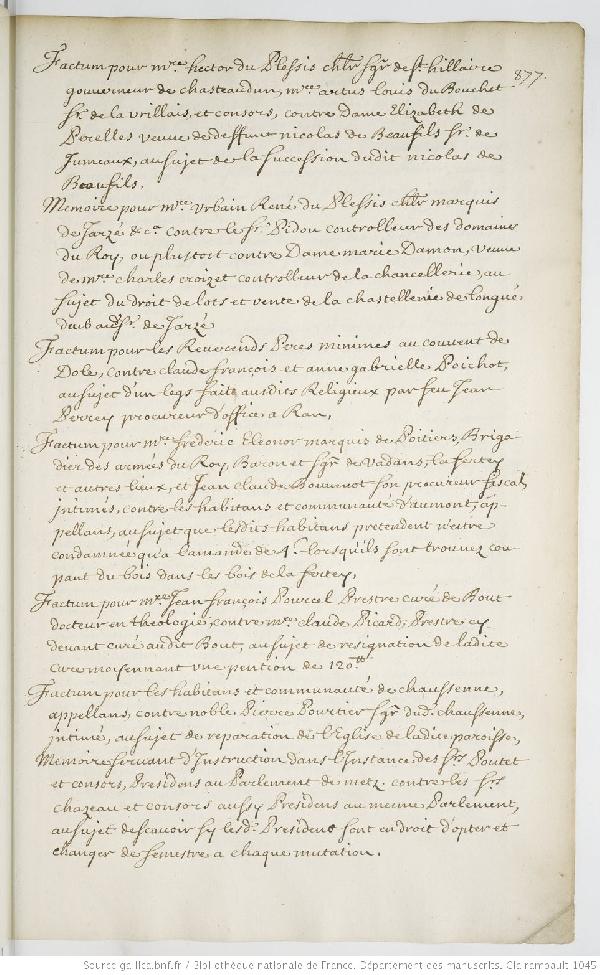 877.
Factum pour mre hector du Plessis chlr sgr de st hillaire
gouverneur de chasteaudun, mre artus louis du Bouchet
sr. de la vrillais, et consors, contre Dame Elizabeth de
Perelles veuve de deffunt nicolas de Beaufils sr. de
Jumeaux, au sujet de la succession dudit nicolas de
Beaufils.
Memoire pour mre Urbain René du Plessis chlr marquis
de Jarzé &ca contre le sr. Pidou controlleur des domaines
du Roy, ou plustost contre Dame marie Damon, veuve
de mre charles croizet controlleur de la chancellerie, au
sujet du droit de lots et vente de la chastellenie de Longué
du sr. de Jarzé
Factum pour les Reverends Peres minimes au couvent de
Dole, contre claude françois et anne gabrielle Poichot,
au sujet d'un legs fait ausdits Religieux par feu Jean
Perrey procureur d'office, a Ran,
Factum pour mre frederic Eleonor marquis de Poitiers, Briga
dier des armées du Roy, Baron et sgr de vadans, la fertey
et autres lieux, et Jean claude Bouvenot son procureur fiscal,
intimés, contre les habitans et communauté d'aumont, ap-
pellans, au sujet que lesdits habitans pretendent n'estre
condamnés qu'a l'amande de lorsqu'ils sont trouvez cou
pant du bois dans les bois de la fertey,
Factum pour mre Jean françois Pourcel Prestre curé de Bout
docteur en theologie, contre mre claude Picard, Prestre cy
devant curé audit Bout, au sujet de resignation de ladite
cure moiennant une pention de 120tt
Factum pour les habitans et communauté de chaussenne,
appellans, contre noble Pierre Pourtier sgr dud. chaussenne,
intimé, au sujet de reparation de l'Eglise de ladite paroisse,
Memoire servant d'Instruction dans l'Instance des srs Poutet
et consors, Presidens au Parlement de metz. contre les srs
chazeau et consors aussy Presidens au meme Parlement,
au sujet de scavoir sy lesd. President sont en droit d'opter et
changer de semestre a chaque mutation.
Source gallica.bnf.fr / Bibliothèque nationale de France. Département des manuscrits. Clairambault 1045